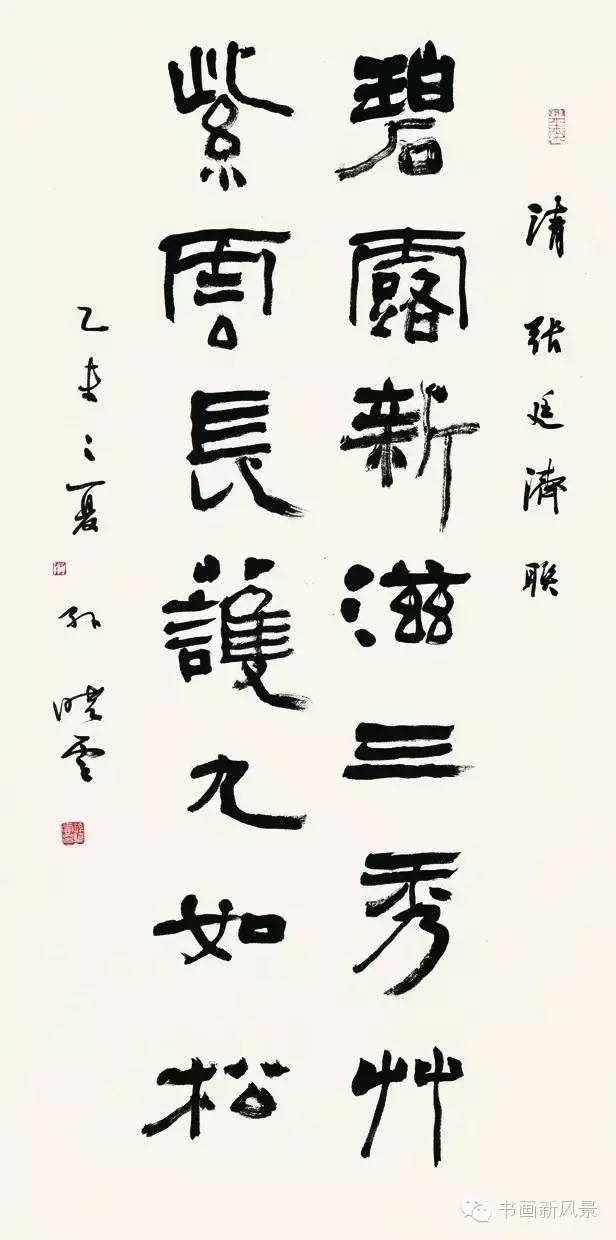 清張廷濟聯
碧露新滋三秀艸
紫雲長護九如松
乙未之夏 孫曉雲
书画新风景